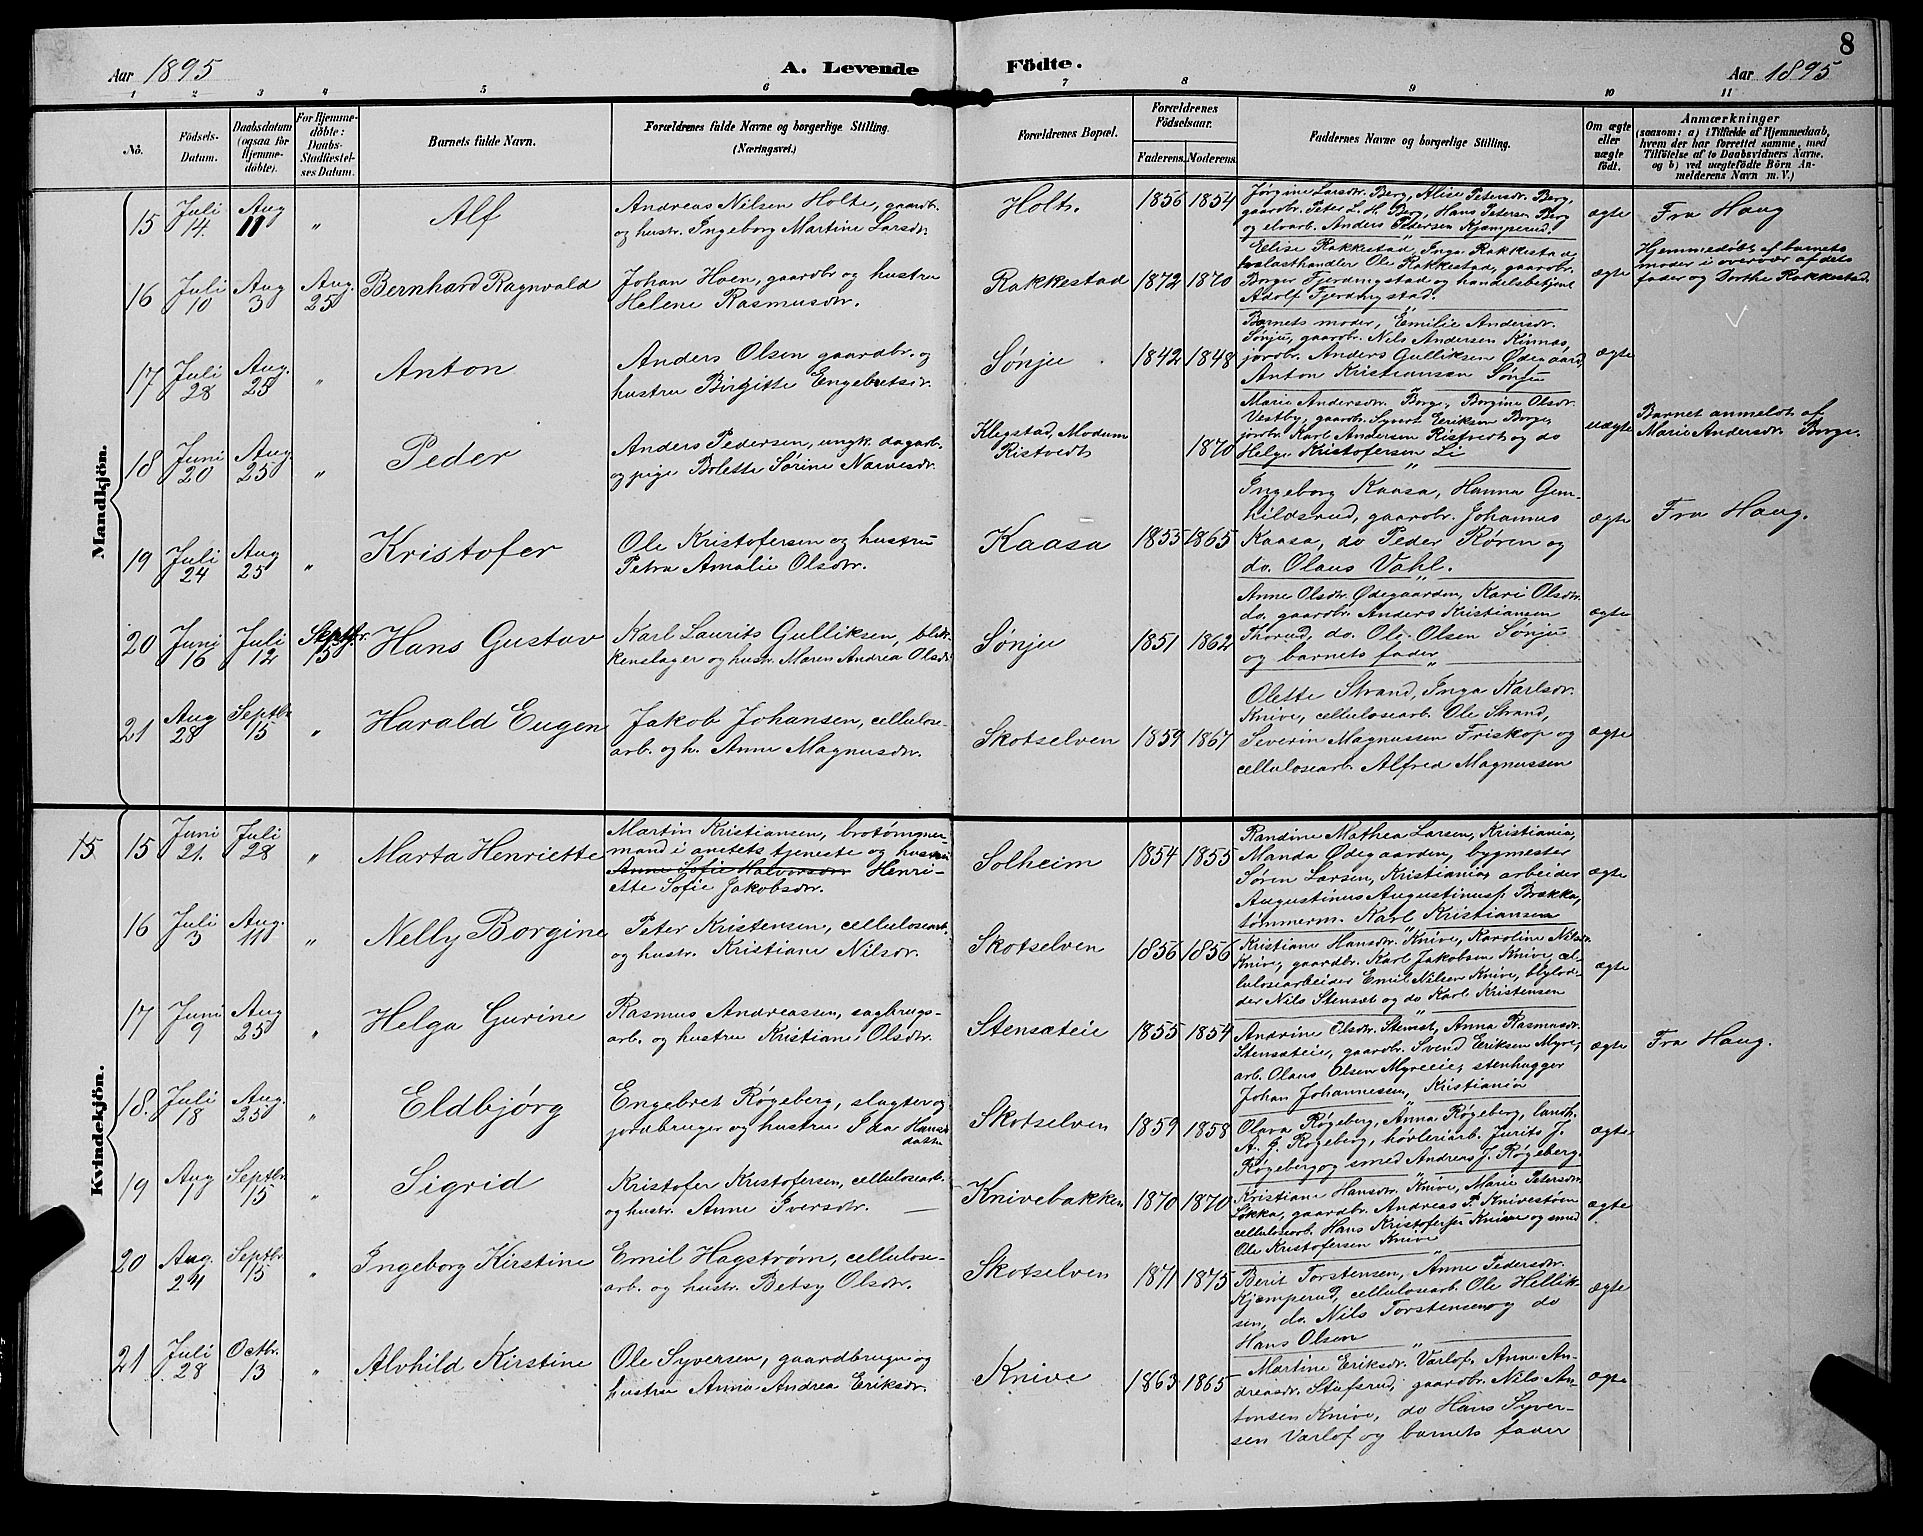 8
Aar 1895
A. Levende
Födte.
Aar 1895
1 2 3 4 5 6 7 8 9 10 11
No.
Födsels-
Datum.
Daabsdatum
(ogsaa for
Hjemme-
döbte).
For Hjemme-
döbte:
Daabs-
Stadfæstel-
ses Datum.
Barnets fulde Navn.
Forældrenes fulde Navne og borgerlige Stilling.
(Næringsvei.)
Forældrenes Bopæl.
Forældrenes
Födselsaar.
Faderens. Moderens.
Faddernes Navne og borgerlige Stilling.
Om ægte
eller
uægte
födt.
Anmærkninger
(saasom: a) i Tilfælde af Hjemmedaab,
hvem der har forrettet samme, med
Tilföielse af to Daabsvidners Navne,
og b) ved uægtefödte Börn An-
melderens Navn m. V.)
Mandkjön.
15
Juli
14.
Aug
11
"
Alf
Andreas Nilsen Holte, gaardbr.
og hustr. Ingeborg Martine Larsdr.
Holt.
1856 1854
Jørgine Larsdr. Berg, Alise Petersdr. Berg,
gaardbr. Peter L. H. Berg, Hans Petersen Berg
og elvarb. Anders Pedersen Kjemperud.
ægte
Fra Haug
16
Juli
10
Aug
3
Aug.
25
Bernhard Ragnvald
Johan Hoen, gaardbr og hustru
Helene Rasmusdr.
Rakkestad
1872 1870
Elise Rakkestad, Inga Rakkestad,
trælasthandler Ole Rakkestad, gaardbr.
Borger Fjerdingstad og handelsbetjent
Adolf Fjerdingstad.
ægte
Hjemmedøbt af barnets
moder i overvær af dets
fader og Dorthe Rakkestad.
17
Juli
28
Aug.
25
"
Anton
Anders Olsen gaardbr. og
hustru Birgitte Engebretsdr.
Sønju
1842 1848
Barnets moder, Emilie Andersdr.
Sønju, gaardbr. Nils Andersen Kinnas,
jordbr. Anders Gulliksen Ødegaard,
Anton Kristiansen Sønju
ægte
18
Juni
20
Aug
25
"
Peder
Anders Pedersen, ungk. dagarb.
og pige Bolette Sørine Narvesdr.
Klegstad, Modum
Ristvedt
1870
Marie Andersdr. Borge, Borgine Olsdr.
Vestby, gaardbr. Syvert Eriksen Borge,
jordbr. Karl Andersen Ristvedt og do
Helge Kristofersen Li
uægte
Barnet anmeldt af
Marie Andersdr. Borge.
19
Juli
24
Aug
25
"
Kristofer
Ole Kristofersen og hustru
Petra Amalie Olsdtr.
Kaasa
1855 1865
Ingeborg Kaasa, Hanna Gun-
hildsrud, gaardbr. Johannes
Kaasa, do Peder Røren og
do. Olaus Vahl.
ægte
Fra Haug.
20
Juni
16
Juli
12
Septbr.
15
Hans Gustav
Karl Laurits Gulliksen, blik-
kenslager og hustr. Maren Andrea Olsdr
Sønju
1851 1862
Anne Olsdtr. Ødegaarden, Kari Olsdtr.
do, gaardbr. Anders Kristiansen
Thorud, do. Ole Olsen Sønju
og barnets fader
ægte
21
Aug
28
Septbr
15
"
Harald Eugen
Jakob Johansen, cellulose-
arb. og h. Anne Magnusdr.
Skotselven
1859 1867
Olette Strand, Inga Karlsdr.
Knive, cellulosearb. Ole Strand,
Severin Magnussen Friskop og
cellulosearb. Alfred Magnussen
ægte
Kvindekjön.
15
15
Juni
21.
Juli
28
"
Marta Henriette
Martin Kristiansen, brotømmer-
mand i amtets tjeneste og hustru
Anne Sofie Halvorsdr Henri-
ette Sofie Jakobsdr.
Solheim
1854 1855
Randine Mathea Larsen, Kristiania,
Manda Ødegaarden, bygmester
Søren Larsen, Kristiania, arbeider
Augustinus Augustinusf. Brekka,
tømmerm. Karl Kristiansen
ægte
16
Juli
3
Aug.
11
"
Nelly Borgine
Peter Kristensen, cellulosearb.
og hustr. Kristiane Nilsdr.
Skotselven
1856 1856
Kristiane Hansdr. Knive, Karoline Nilsdr.
Knive, gaardbr. Karl Jakobsen Knive, cel-
lulosearbeider Emil Nilsen Knive,
der Nils Stensæt og do Karl Kristensen
ægte
17
Juni
9
Aug
25
"
Helga Gurine
Rasmus Andreassen, sagbrugs-
arb. og hustru Kristiane Olsdtr.
Stensæteie
1855 1854
Andrine Olsdtr. Stensæt, Anna Rasmusdr.
Stensæteie, gaardbr. Svend Eriksen Myre,
arb. Olaus Olsen Myreeie, stenhugger
Johan Johannesen, Kristiania
ægte
Fra Haug.
18.
Juli
18
Aug.
25
"
Eldbjørg
Engebret Røgeberg, slagter og
jordbruger og hustru Ida Hans-
datter
Skotselven
1859 1858
Olava Røgeberg, Anna Røgeberg, landh.
A. J. Røgeberg, høvleriarb. Jurits J.
Røgeberg og smed Andreas J. Røgeberg.
ægte
19
Aug
1
Septbr.
15
"
Sigrid
Kristofer Kristofersen, cellulosearb.
og hustr. Anne Iversdtr.
Knivebakken
1870 1870
Kristiane Hansdtr. Knive, Marie Petersdr.
Løkka, gaardbr. Andreas P. Knivestøen
cellulosearb. Hans Kristofersen Knive og smed
Ole Kristofersen Knive
ægte
20
Aug.
24
Septbr
15
"
Ingeborg Kirstine
Emil Hagstrøm, cellulose-
arb. og hustr. Betsy Olsdtr.
Skotselven
1871 1875
Berit Torstensen, Anne Pedersdr.
Kjemperud, cellulosearb. Ole Hellik-
sen, do. Nils Torstensen og do
Hans Olsen
ægte
21
Juli
28
Octbr.
13
"
Alvhild Kirstine
Ole Syversen, gaardbruger og
hustru Anna Andrea Eriksdr.
Knive
1863 1865
Martine Eriksdr. Varlof, Anne An-
dreasdr. Stufsrud, gaardbr. Nils An-
tonsen Knive, do Hans Syver-
sen Varlof og barnets fader
ægte